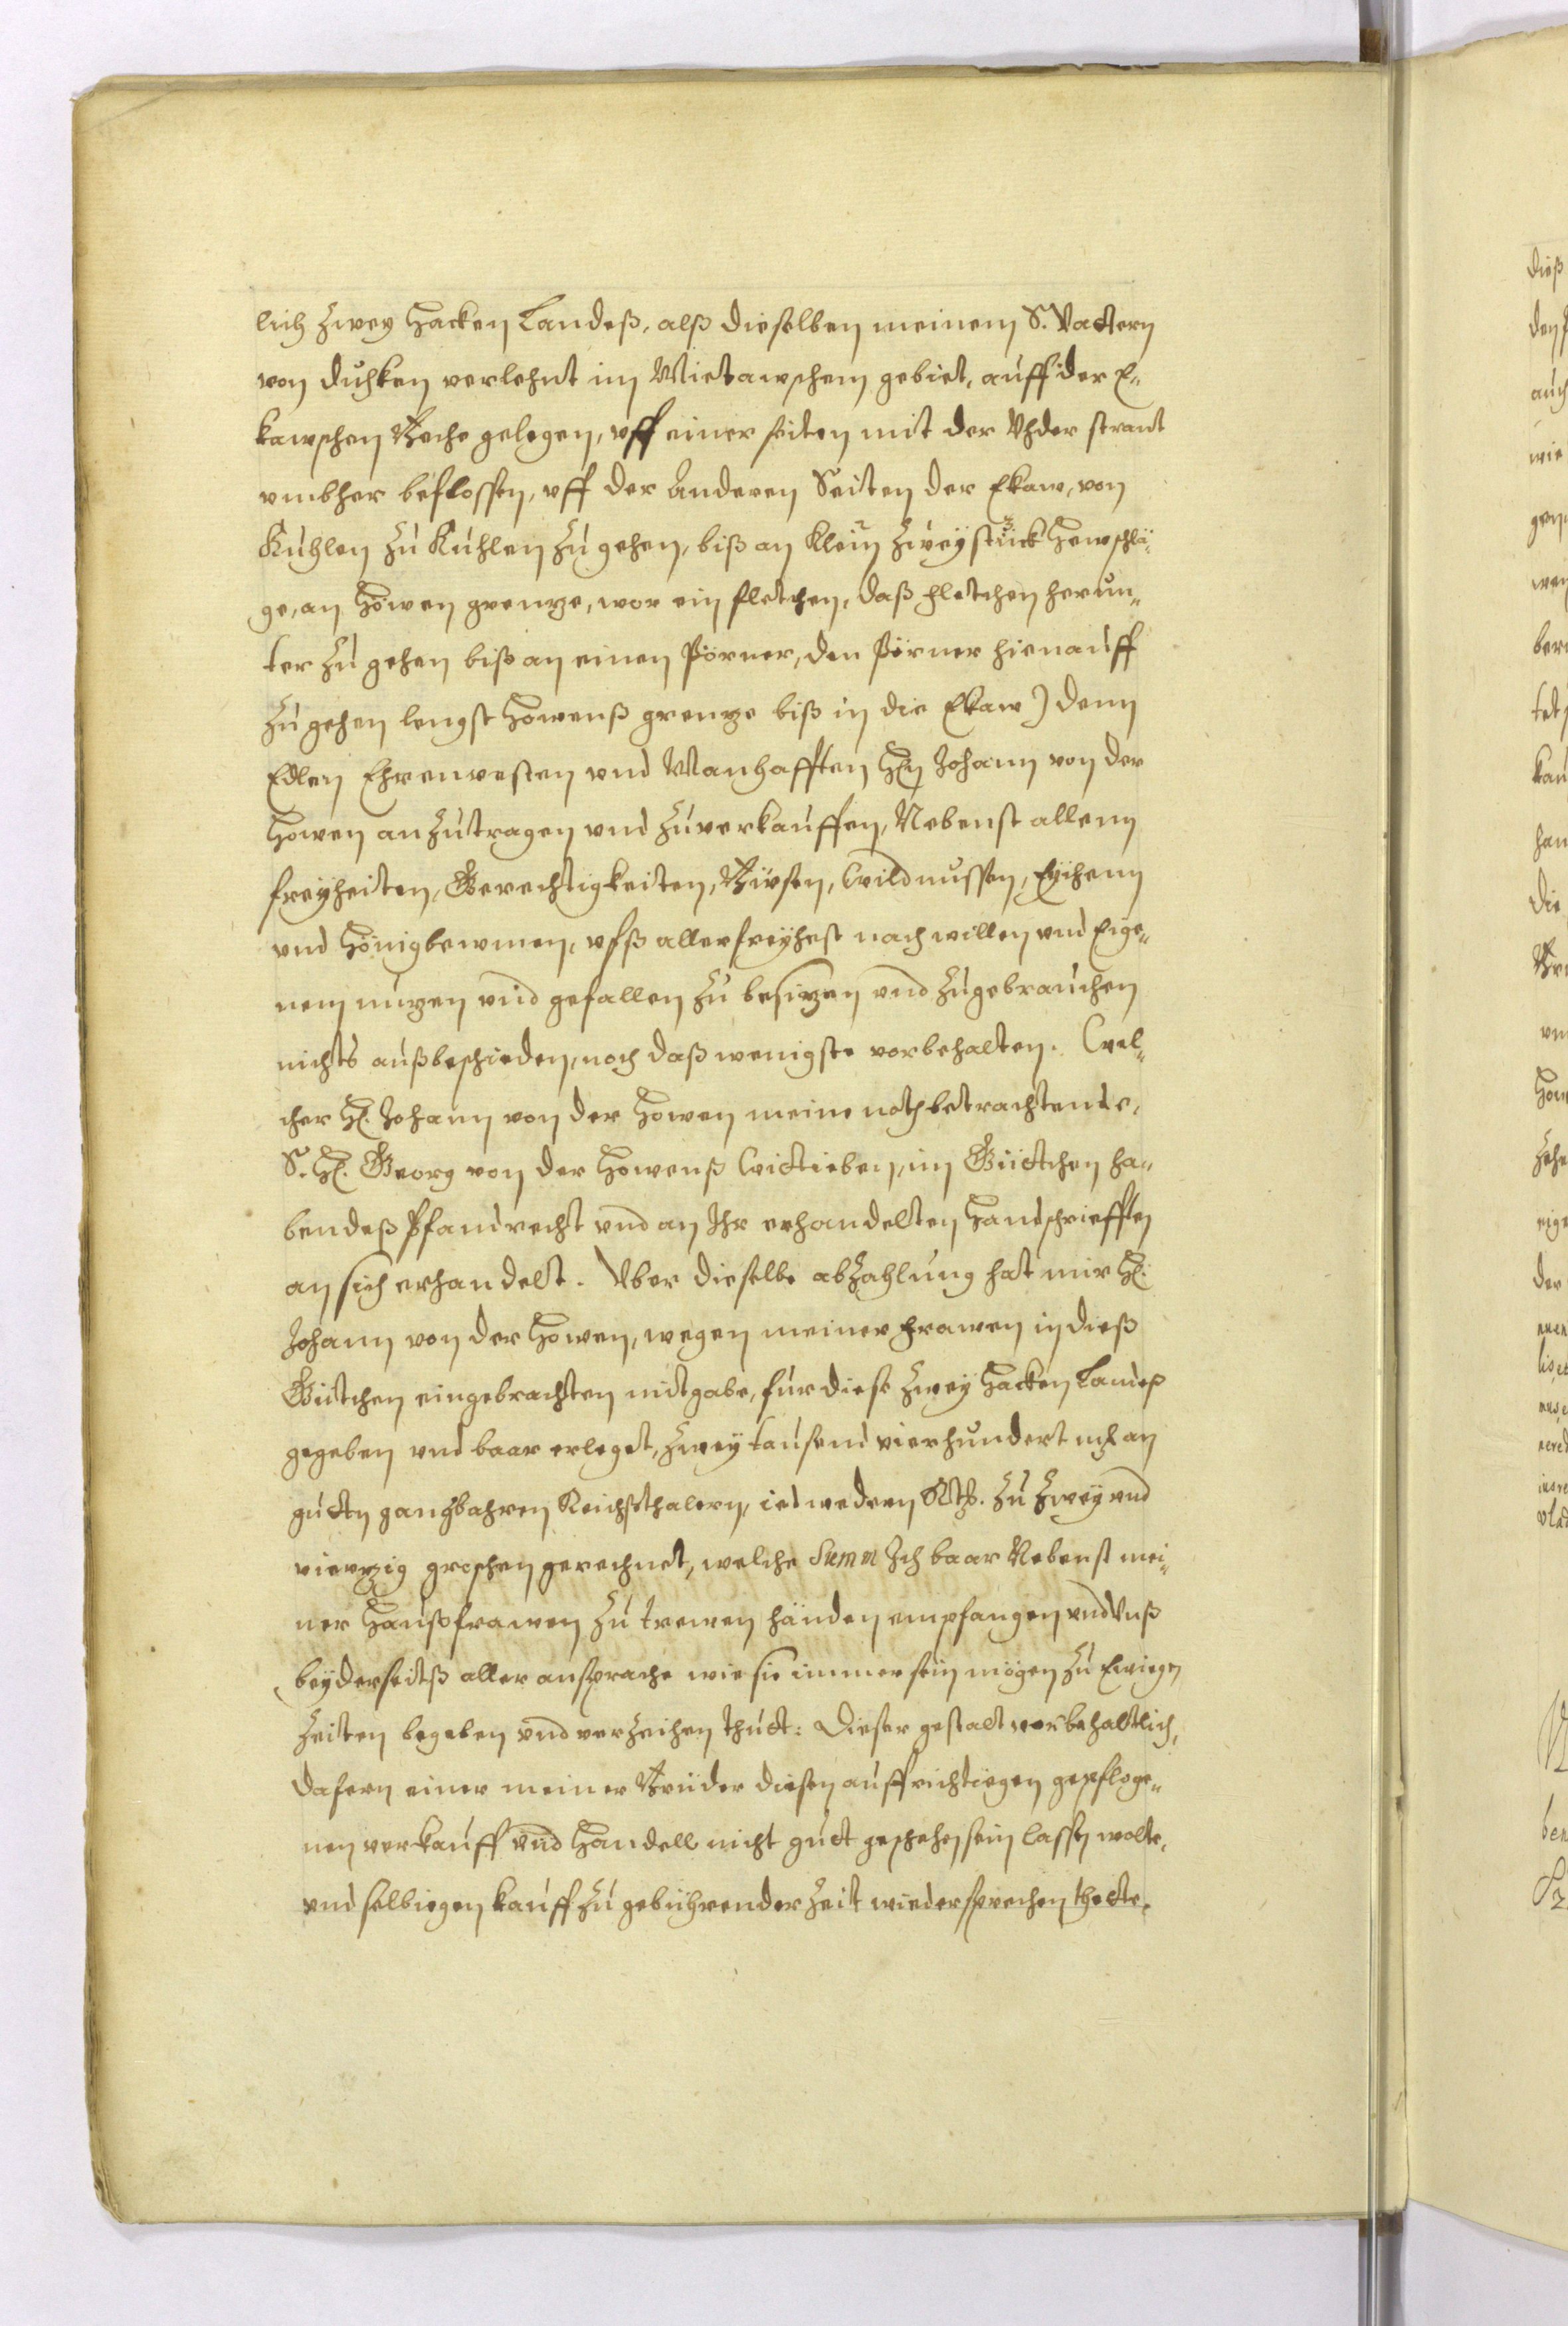 lich zwey Hacken Landeß, alß dieselben meinem S. Vattern
von duhken verlehnt im Mietawschem gebiet, auff der E-
kawschen Beche gelegen, vff einer seiten mit der Vhder strant
vmbher beflossen, vff der Anderen Seiten der Ekaw, von
Kuhlen zu Kuhlen zu gehen, biß an klein zweystück Hewschlä-
ge, an Howen grenze, wor ein fletchen, daß fletchen herun-
ter zu gehen biß an einen Pörner, den Pörner hienauff
zu gehen lengst Howenß grenze biß in die Ekaw) dem
Edlen Ehrenvesten vnd Manhafften H Johann von der
Howen anzutragen vnd zuverkauffen, Nebenst allem
freyheiten, Gerechtigkeiten, Birsen, Wildnussen, Eichenn
vnd Hönigbewmen, vfß allerfreyhest nach willen vnd Eige-
nem nuzen vnd gefallen zu besizen vnd zugebrauchen
nichts außbeschieden, noch daß wenigste vorbehalten. Wel-
cher H. Johann von der Howen meine noth betrachtende,
S. H. Georg von der Howenß Wittieben, im Güttchen ha-
bendeß Pfandrecht vnd an Ihr erhandelten Handschriefften
an sich erhandelt. Vber dieselbe abzahlung hat mir H.
Johann von der Howen, wegen meiner frawen in dieß
Gütchen eingebrachten mitgabe, für diese zwey Hacken Landeß
gegeben vnd baar erleget, zwey tausend vierhundert mk an
gutten gangbahren Reichsthalern, iedwedern Rth. zu zwey vnd
vierzig groschen gerechnet, welche Summ Ich baar Nebenst mei-
ner Haußfrawen zu trewen händen empfangen vnd Vnß
beyderseitß aller ansprache wie sie immer sein mögen zu Ewigen
zeiten begeben vnd verzeihen thutt: Dieser gestalt vorbehaltlich,
dafern einer meiner Brüder diesen auffrichtiegen gepfloge-
nen verkauff vnd Handell nicht gutt geschehen sein lassen wolte,
vnd selbiegen kauff zu gebührender zeit wiedersprechen thette,